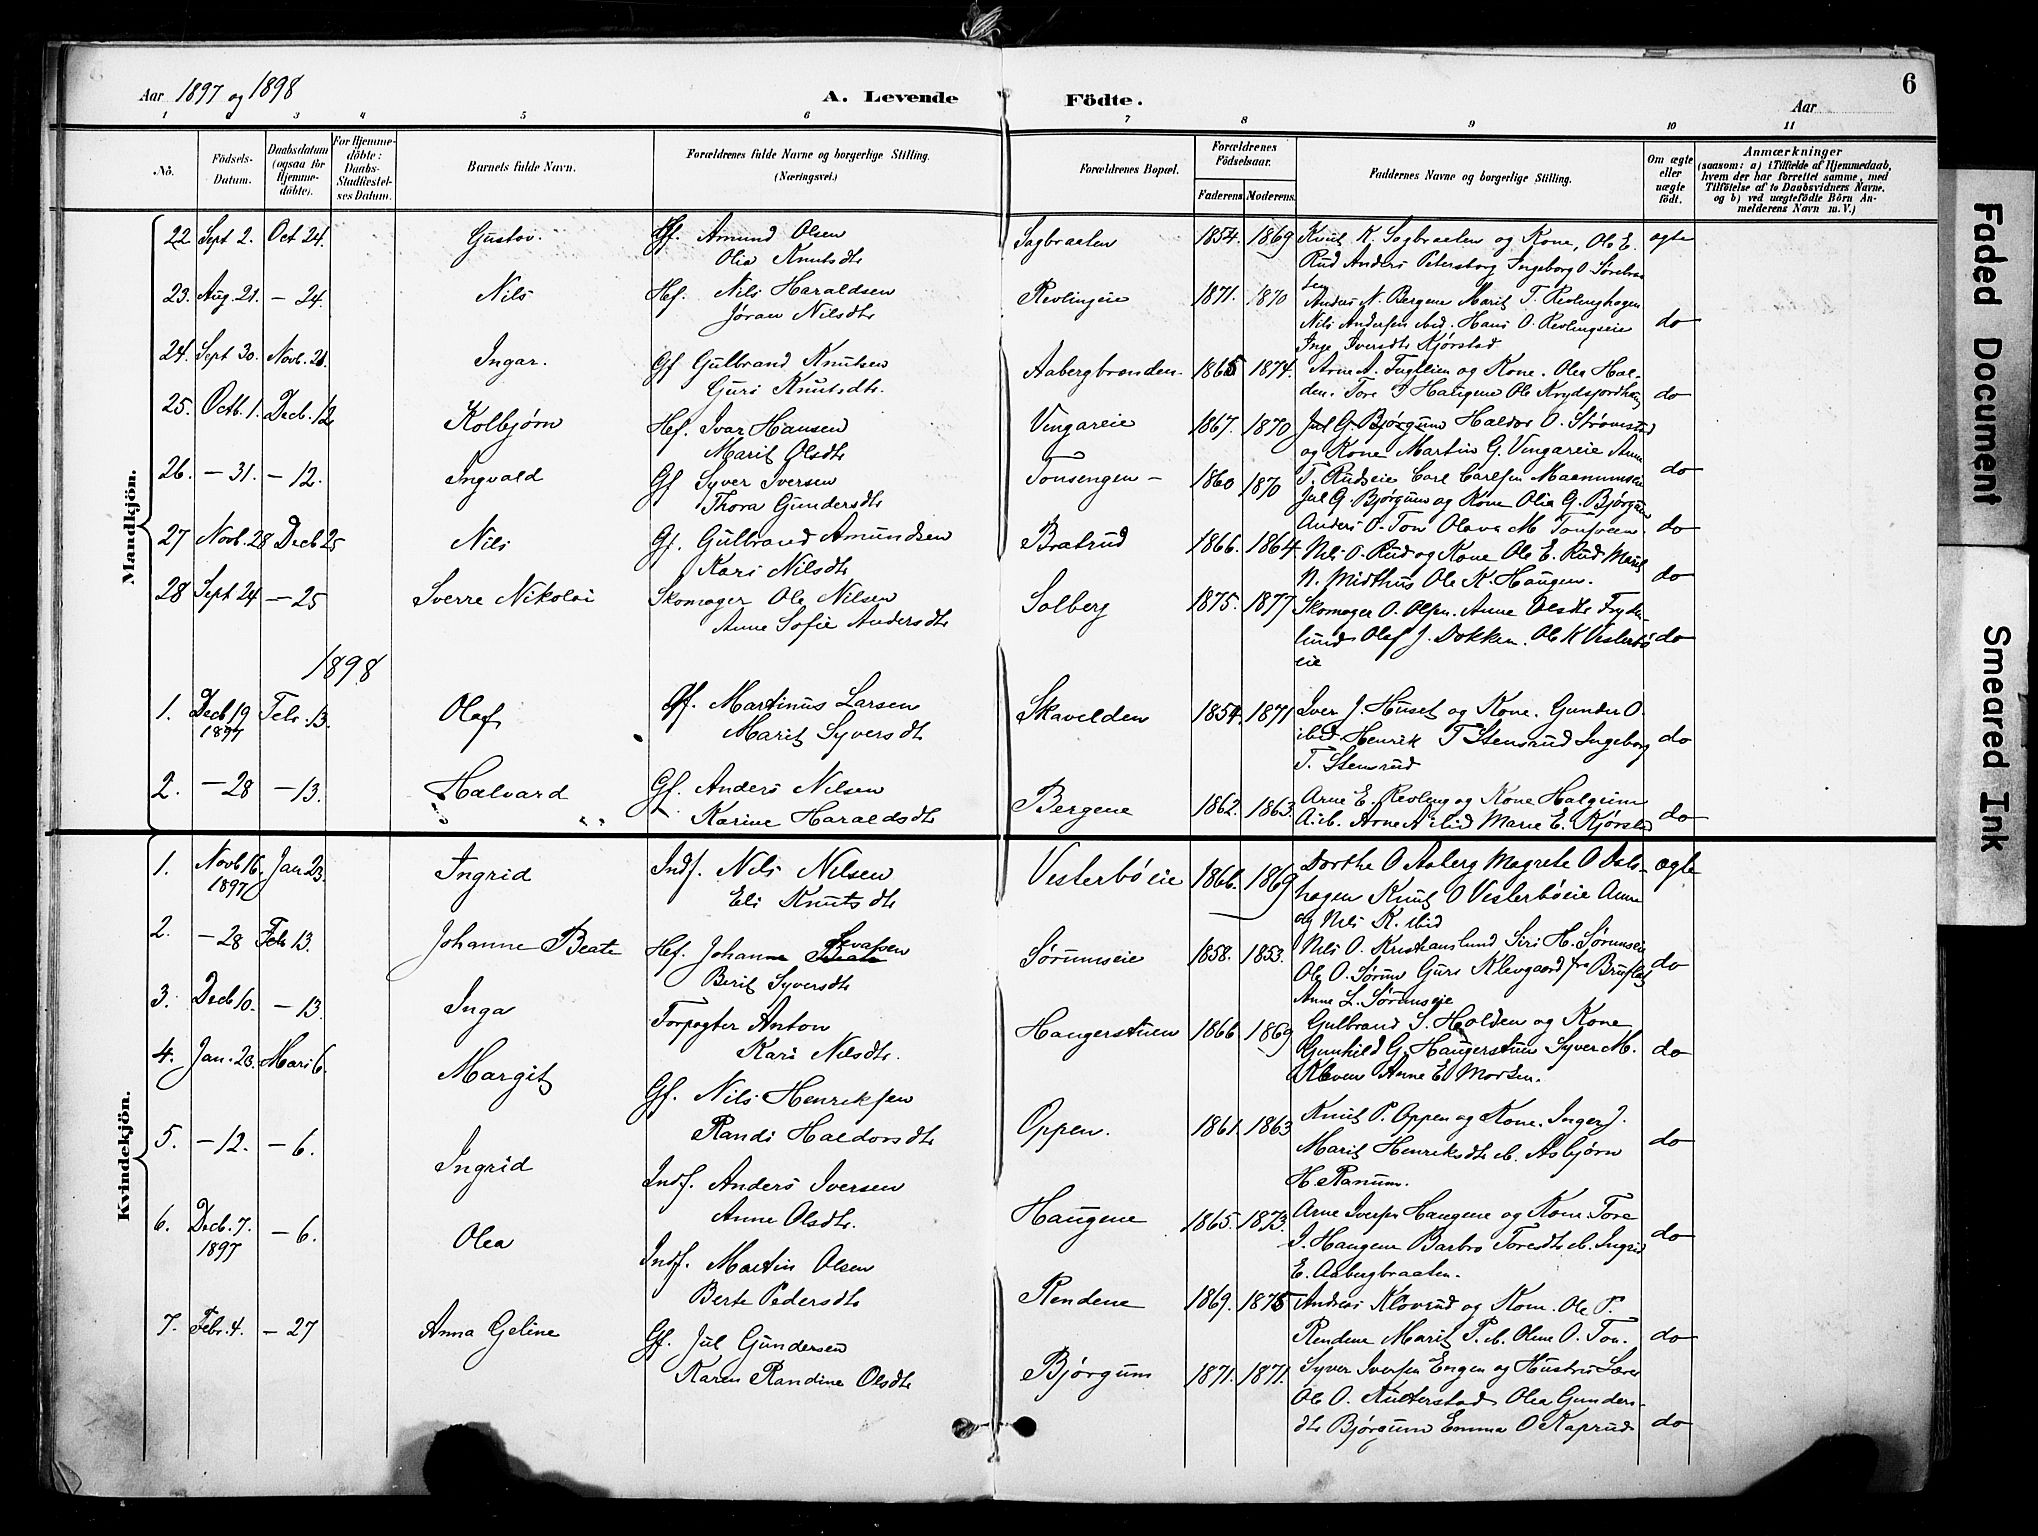 Aar 1897 og 1898 A. Levende Födte. Aar 6
1 2 3 4 5 6 7 8 9 10 11
No. Födsels-Datum. Daabsdatum (ogsaa for Hjemmedöbte). For Hjemmedöbte: Daabs-Stadfestelses Datum. Barnets fulde Navn. Forældrenes fulde Navne og borgerlige Stilling. (Næringsvei.) Forældrenes Bopæl. Forældrenes Födselsaar. Faderens Moderens. Faddernes Navne og borgerlige Stilling. Om ægte eller uægte födt. Anmærkninger (saasom: a) i Tilfælde af Hjemmedaab, hvem der har forrettet samme, med Tilföielse af to Daabsvidners Navne. og b) ved uægtefödte Börn Anmelderens Navn m. V.)
Mandkjön.
22 Sept 2. Oct 24. Gustav. Gf. Amund Olsen Sagbraaten 1854. 1869 Knut K. Sagbraaten og Kone, Ole E. ægte
Olia Knutsdtr Rud Anders Petersborg Ingeborg O Sørebraa
23. Aug. 21. - 24. Nils Hef. Nils Haraldsen Revlingeie 1871. 1870 ten Anders N. Bergene Marit T. Revlinghagen
Jøran Nilsdtr Nils Andersen ibid. Hans O. Revlingseie do
Inge Iversdtr Kjørstad
24. Sept 30. Novb. 21. Ingar. Gf Gulbrand Knutsen Aabergbraenden 1865 1874. Arne A. Fuglien og Kone. Ole Hal-
Guri Knutsdtr. den. Tore I Haugene Ole Krydsfjordhaug do
25. Octb. 1. Decb. 12 Kolbjørn Hef. Ivar Hansen Vingareie 1867. 1870 Jul G. Bjørgum Haldor O. Strømstad
Marit Olsdtr og Kone Martin G. Vingareie Anne do
26. - 31. - 12. Ingvald Gf Syver Iversen Tonsengen - 1860 1870 T. Rudseie Carl Carlsen
Thora Gundersdtr Jul G. Bjørgum og Kone Olia G. Bjørgum
27 Novb. 28 Decb 25 Nils Gf. Gulbrand Amundsen Bratrud 1866. 1864. Anders O. Ton Olava M. Tonsveen. do
Kari Nilsdtr Nils O. Rud og Kone Ole E. Rud Marit
28 Sept 24 - 25 Sverre Nikolai Skomager Ole Nilsen Solberg 1875. 1877 N. Midthus Ole K. Haugen. do
Anne Sofie Andersdtr Skomager O. Olsen. Anne Olsdtr Fryden
lund Olaf J. Dokken. Ole K Vesterbø do
eie
1898
1. Decb 19 1897 Febr. 13. Olaf Gf. Martinus Larsen Skavelden 1854. 1871 Iver J. Huset og Kone. Gunder O.
Marit Syversdtr ibid Henrik T Stensrud Ingeborg do
T. Stensrud
2. - 28 - 13. Halvard Gf. Anders Nilsen Bergene 1862. 1863. Arne E. Revling og Kone Halgrim
Karine Haraldsdtr A. ib. Arne A ibid Marie E. Kjørstad do
Kvindekjön.
1. Novb 16. 1897 Jan 23. Ingrid Indf. Nils Nilsen Vesterbøeie 1866. 1869 Dorthe O Aaberg Magrete O Dals- ægte
Eli Knutsdtr hagen Knut O Vesterbøeie Anne
og Nils K. ibid
2. - 28 Feb 13. Johanne Beate Hef. Johan Sevatsen Sørumseie 1858. 1853. Nils O. Kristianslund Siri H. Sørumseie
Berit Syversdtr Ole O. Sørum Guri Klevgaard fra Bruflat do
Anne L. Sørumseie
3. Decb 10. - 13. Inga Forpagter Anton Haugerstuen 1866 1869 Gulbrand S. Holden og Kone
Kari Nilsdtr. Gunhild G. Haugerstuen Syver M. do
Kleven Anne E. Morken.
4. Jan. 20. Mars 6. Margit Gf. Nils Henriksen Oppen. 1861. 1863 Knut P. Oppen og Kone. Inger J.
Randi Haldorsdtr Marit Henriksdtr ib. Asbjørn do
H. Ranum.
5. - 12. - 6. Ingrid Indf. Anders Iversen Haugene 1865. 1873. Arne Iversen Haugene og Kone Tore
Anne Olsdtr. I. Haugene Barbro Toresdtr ib. Ingrid do
E. Aabergbraaten.
6. Decb. 7. 1897 - 6. Olea Indf. Martin Olsen Rendene 1869. 1875 Andreas Klovrud og Kone. Ole P.
Berte Pedersdtr Rendene Marit P. ib. Olene O. Ton. do
7. Febr. 4. - 27 Anna Geline Gf. Jul Gundersen Bjørgum 1871. 1871. Syver Iversen Engen og Hustru Lærer
Karen Randine Olsdtr Ole O. Kulterstad Olea Gunders-
dtr Bjørgum Emma O Kaprud do
Faded Document
Smeared Ink